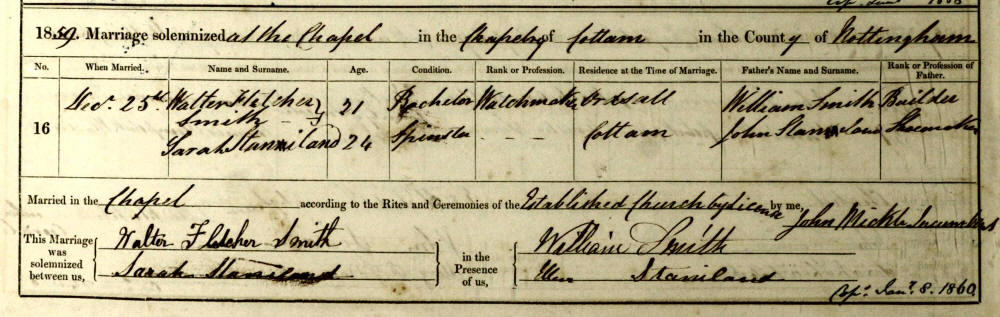 1859. Marriage solemnized at the Chapel in the Chapelry of Cottam in the County of Nottingham
No. When Married. Name and Surname. Age. Condition. Rank or Profession. Residence at the Time of Marriage. Father's Name and Surname. Rank or Profession of Father.
16 Decr. 25th Walter Fletcher Smith 21 Bachelor Watchmaker Ordsall William Smith Builder
Sarah Stanniland 24 Spinster - - - Cottam John Shoemaker
Married in the Chapel according to the Rites and Ceremonies of the Established Church by License by me, John Mickle Incumbent
This Marriage was solemnized between us, Walter Fletcher Smith in the Presence of us, William Smith
Sarah Staniland Staniland
Jany. 8. 1860